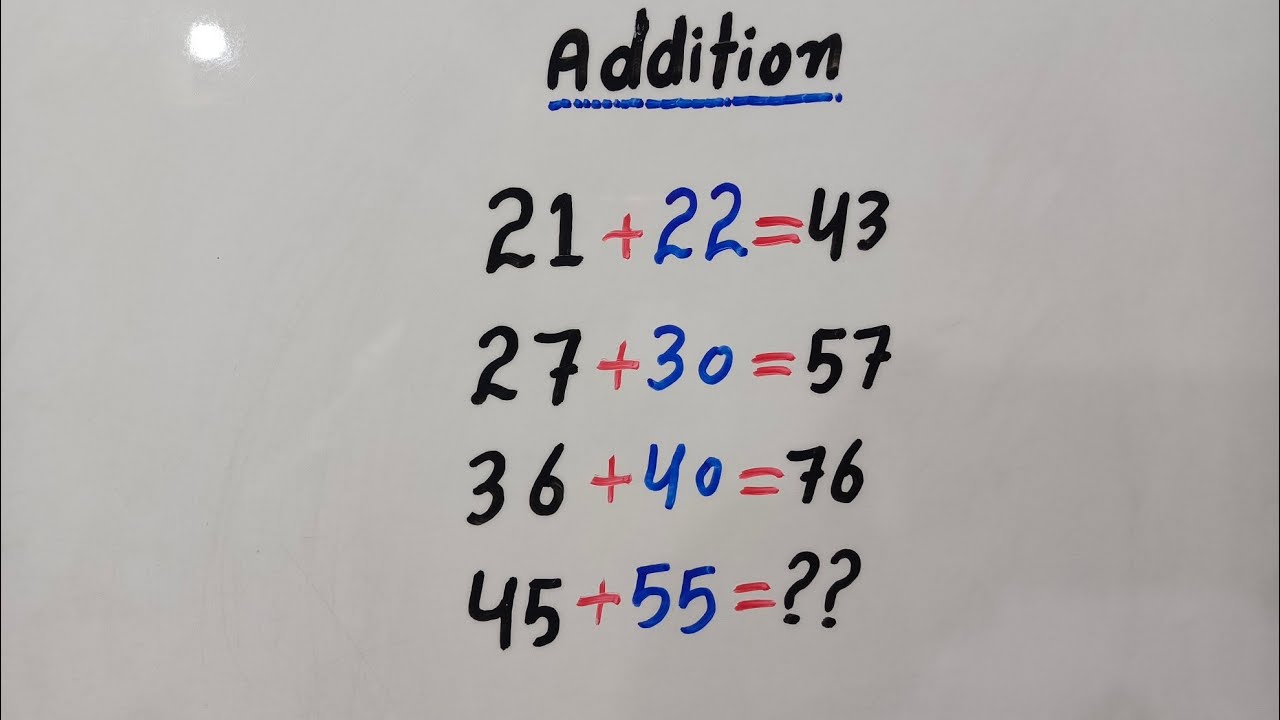 Addition
21+22=43
27+30=57
36+40=76
45+55=??